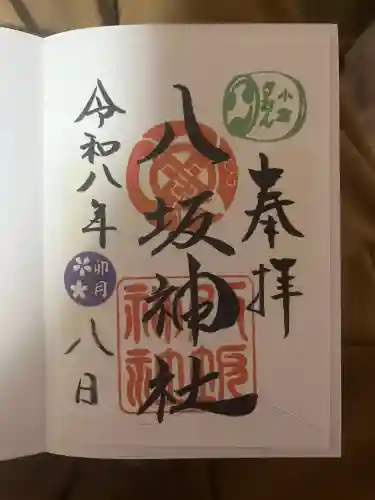 奉拝
八坂神社
令和八年
卯月
八日
八坂神社